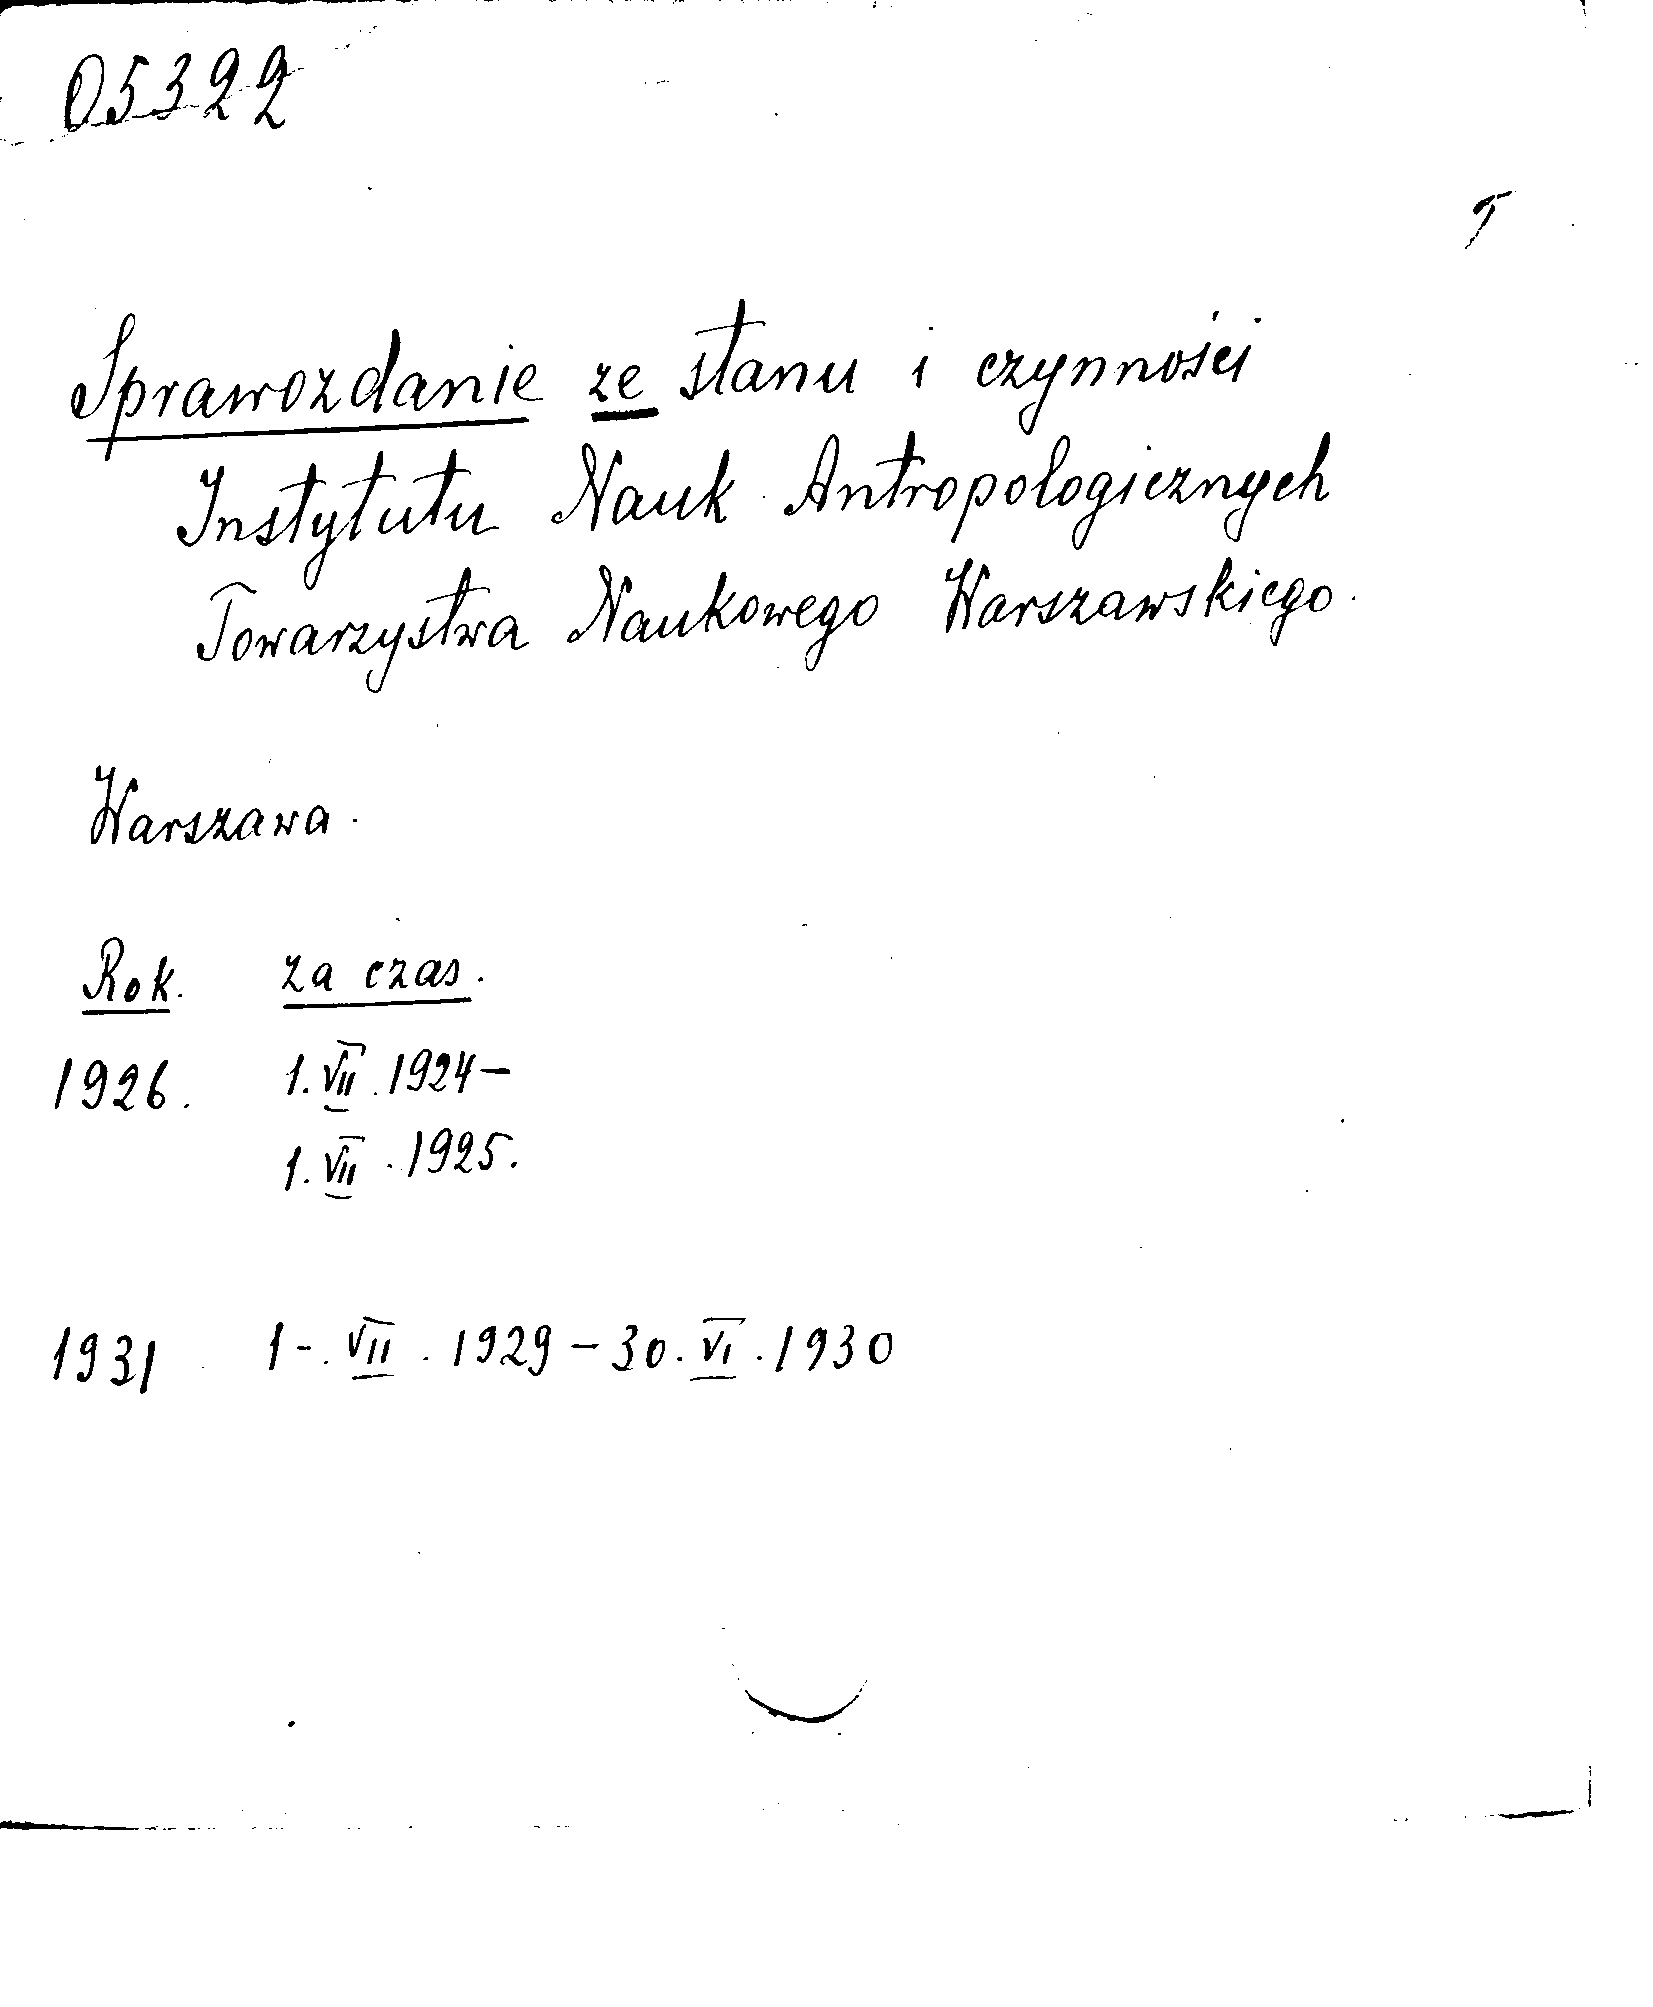 05322
Sprawozdanie ze stanu i czynności
Instytutu Nauk Antropologicznych
Towarzystwa Naukowego Warszawskiego.
Warszawa.
Rok. za czas.
1926. 1. VII. 1924 –
1. VII. 1925.
1931 1 -. VII. 1929 – 30. VI. 1930